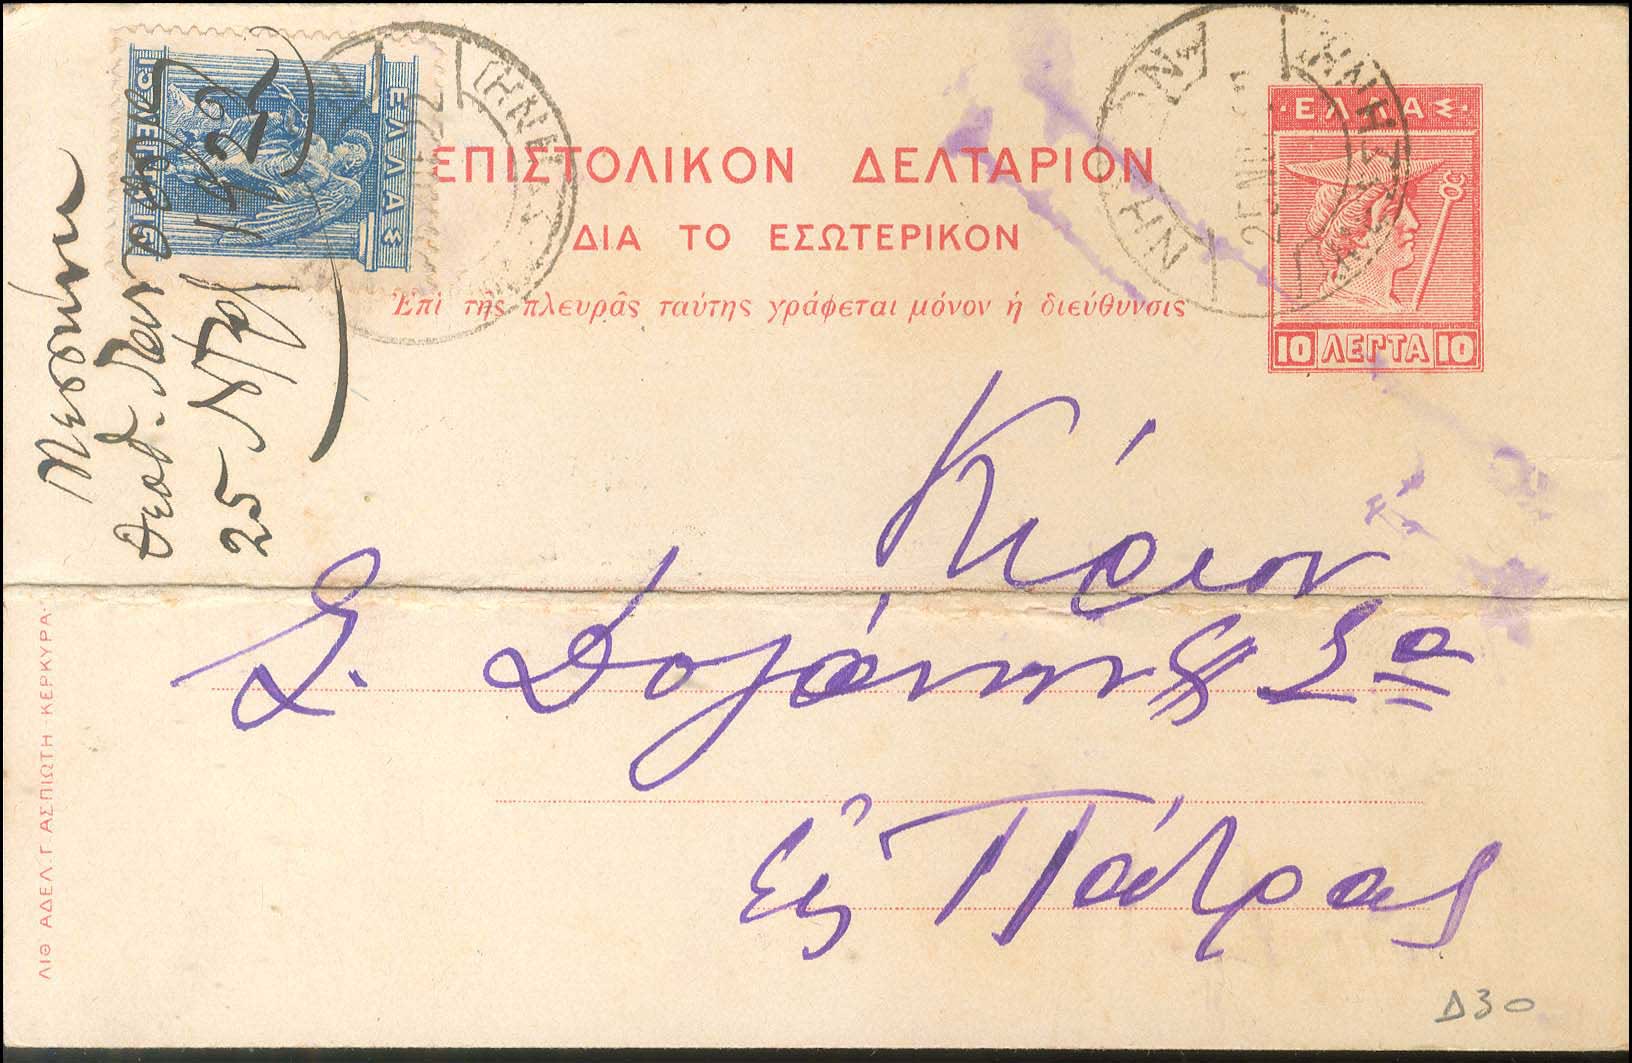 ΕΛΛΑΣ
15 ΛΕΠΤΑ 15
ΕΠΙΣΤΟΛΙΚΟΝ ΔΕΛΤΑΡΙΟΝ
ΔΙΑ ΤΟ ΕΣΩΤΕΡΙΚΟΝ
Ἐπὶ τῆς πλευρᾶς ταύτης γράφεται μόνον ἡ διεύθυνσις
·ΕΛΛΑΣ·
10 ΛΕΠΤΑ 10
Μεσσήνη
25
Κύριον
Σ.
Εἰς Πάτρας
ΛΙΘ ΑΔΕΛ. Γ. ΑΣΠΙΩΤΗ·ΚΕΡΚΥΡΑ·
Δ30